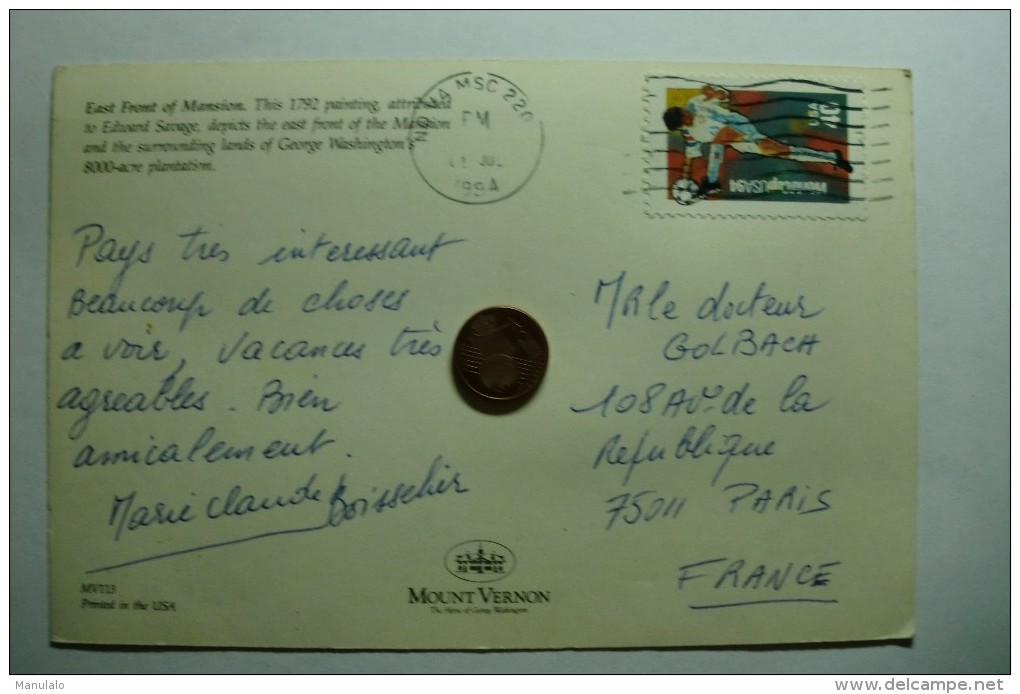 East Front of Mansion. This 1792 painting, attributed
to Edward Savage, depicts the east front of the Mansion
and the surrounding lands of George Washington's
8000-acre plantation.
MSC 220
PM
1994
USA
40
WorldCupUSA94
Pays très interessant
Beaucoup de choses
a voir, vacances très
agreables. Bien
amicalement.
Marie Claude Boisselier
MR le docteur
GOLBACH
108 Av. de la
Republique
75011 PARIS
FRANCE
MV113
Printed in the USA
MOUNT VERNON
The Home of George Washington
Manulalo
www.delcampe.net